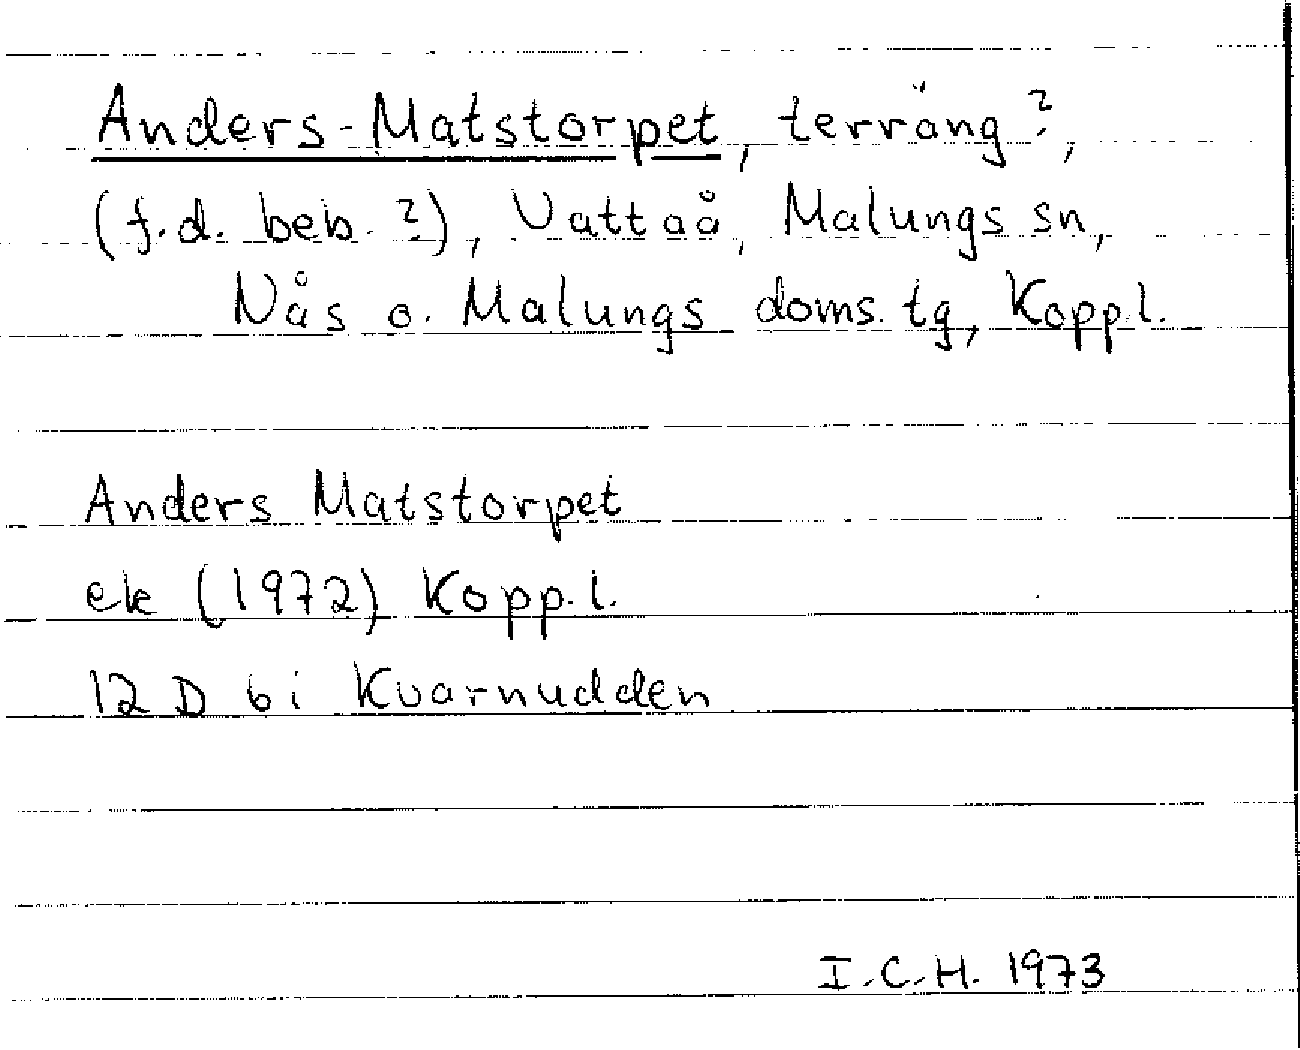 Anders-Matstorpet, terräng?,
(f.d. beb. ?), Vattaå, Malungs sn,
Nås o. Malungs doms. tg, Kopp.l.
Anders Matstorpet
ek (1972) Kopp.l.
12 D 6 i Kvarnudden
I.C.H. 1973